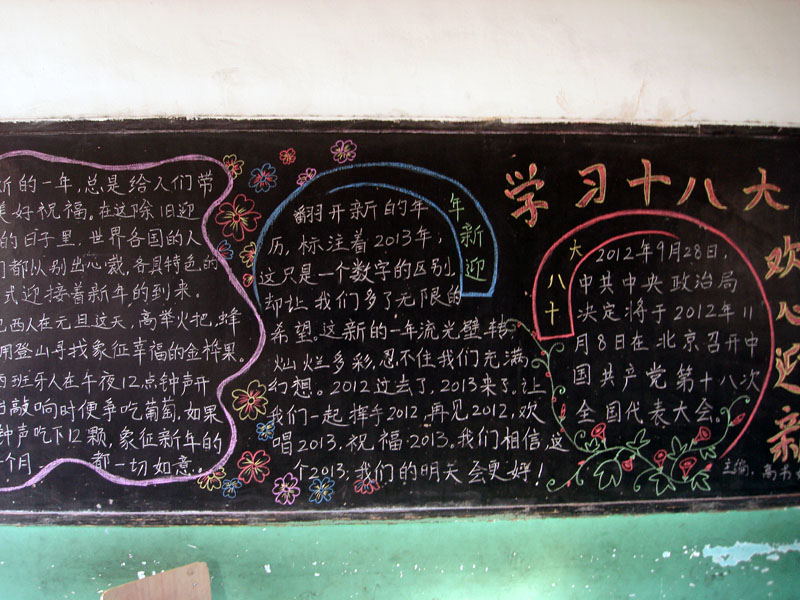 新的一年,总是给人们带
美好祝福。在这除旧迎
的日子里,世界各国的人
们都从别出心裁、各具特色的
式迎接着新年的到来。
巴西人在元旦这天,高举火把,蜂
用登山寻找象征幸福的金桦果。
西班牙人在午夜12点钟声开
敲响时便争吃葡萄,如果
钟声吃下12颗,象征新年的
个月 都一切如意。
年新迎
翻开新的年
历,标注着2013年,
这只是一个数字的区别,
却让我们多了无限的
希望。这新的一年流光壁转,
灿烂多彩,忍不住我们充满
幻想。2012过去了,2013来了。让
我们一起挥手2012,再见2012,欢
唱2013,祝福2013。我们相信,这
个2013,我们的明天会更好!
学习十八大
大八十
2012年9月28日,
中共中央政治局
决定将于2012年11
月8日在北京召开中
国共产党第十八次
全国代表大会。
欢心迎新
主编:高书